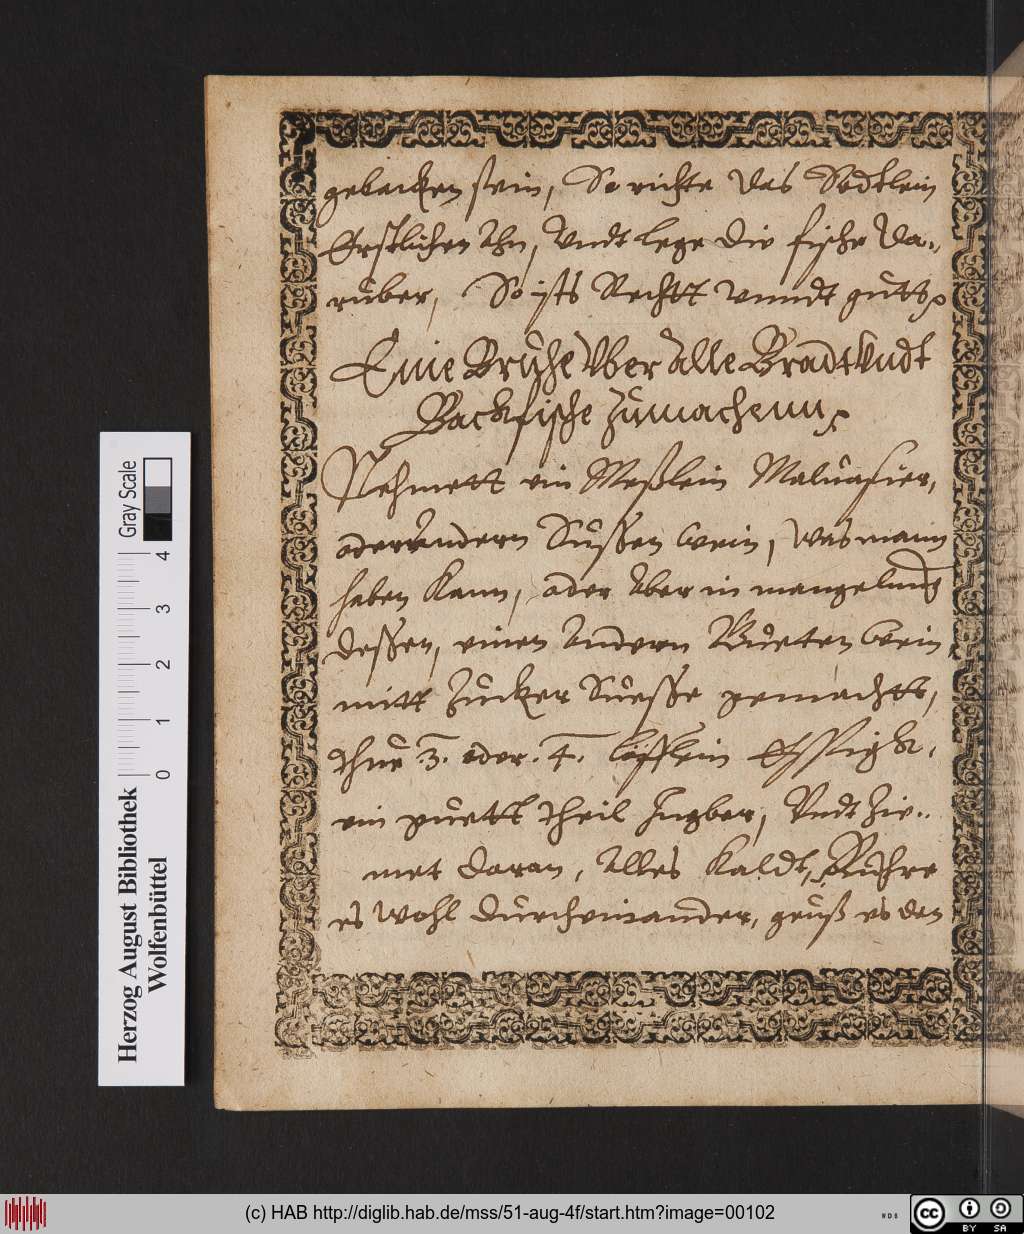 gebacken sein, So richte das Sodtlein
Erstlichen Ahn, Undt lege die fische Da..
rüber, So ists Rechtt vnndt gütts
Eine Brühe Uber Alle Bradt Undt
Backfische Zumachenn
Nehmett ein Meßlein Maluasier,
oder Andern Süssen wein, Was mann
haben kann, oder Aber in mangelung
dessen, einen Andern Gueten wein
mitt Zucker Süesse gemachtt,
thue 3. oder 4. löfflein Essigk,
ein guett theil Ingber, Undt Zie..
met daran, Alles kaldt, Rühre
es wohl durcheinander, geuß es den
Herzog August Bibliothek
Wolfenbüttel
Gray Scale
0 1 2 3 4
(c) HAB http://diglib.hab.de/mss/51-aug-4f/start.htm?image=00102
WDB
cc BY SA